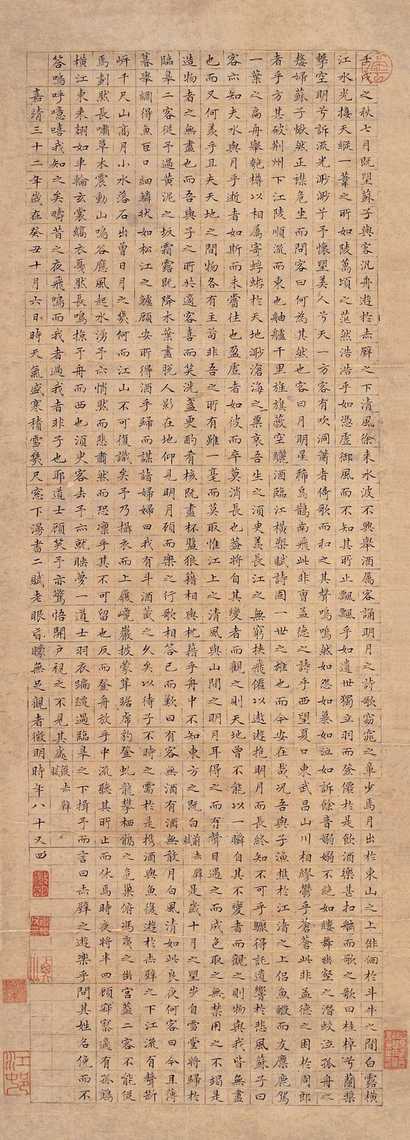 壬戌之秋七月既望蘇子與客汎舟遊於赤壁之下清風徐來水波不興舉酒屬客誦明月之詩歌窈窕之章少焉月出於東山之上徘徊於斗牛之間白露橫
江水光接天縱一葦之所如陵萬頃之茫然浩浩乎如憑虛御風而不知其所止飄飄乎如遺世獨立羽而登僊於是飲酒樂甚扣舷而歌之歌曰桂棹兮蘭槳
擊空明兮訴流光渺渺兮予懷望美人兮天一方客有吹洞簫者倚歌而和之其聲嗚嗚然如怨如慕如泣如訴餘音嫋嫋不絕如縷舞幽壑之潛蛟泣孤舟之
嫠婦蘇子愀然正襟危坐而問客曰何為其然也客曰月明星稀烏鵲南飛此非曹孟德之詩乎西望夏口東武昌山川相繆鬱乎蒼蒼此非孟德之困於周郎
者乎方其破荊州下江陵順流而東也舳艫千里旌旗蔽空釃酒臨江橫槊賦詩固一世之雄也而今安在哉況吾與子漁樵於江渚之上侶魚蝦而友麋鹿駕
一葉之扁舟舉匏樽以相屬寄蜉蝣於天地渺滄海之一粟哀吾生之須臾羨長江之無窮挾飛僊以遨遊抱明月而長終知不可乎驟得託遺響於悲風蘇子曰
客亦知夫水與月乎逝者如斯而未嘗往也盈虛者如彼而卒莫消長也蓋將自其變者而觀之則天地曾不能以一瞬自其不變者而觀之則物與我皆無盡
也而又何羨乎且夫天地之間物各有主苟非吾之所有雖一毫而莫取惟江上之清風與山間之明月耳得之而有聲目遇之而成色取之無禁用之不竭是
造物者之無盡也而吾與子之所共適客喜而笑洗盞更酌肴核既盡杯盤狼籍相與枕藉乎舟中不知東方之既白 前赤壁 是歲十月之望步自雪堂將歸於
臨皋二客從予過黃泥之坂霜露既降木葉盡脫人影在地仰見明月顧而樂之行歌相答已而歎曰有客無酒有酒無肴月白風清如此良夜何客曰今日薄
暮舉網得魚巨口細鱗狀如松江之鱸顧安所得酒乎歸而謀諸婦婦曰我有斗酒藏之久矣以待子不時之需於是攜酒與魚復遊於赤壁之下江流有聲斷
岍千尺山高月小水落石出曾日月之幾何而江山不可復識矣予乃攝衣而上履巉巖披蒙茸踞虎豹登虬龍攀栖鶻之危巢俯馮夷之幽宮蓋二客不能從
焉劃然長嘯草木震動山鳴谷應風起水湧予亦悄然而悲肅然而恐凜乎其不可留也反而登舟放乎中流聽其所止而休焉時夜將半四顧寂寥適有孤鶴
橫江東來翅如車輪玄裳縞衣戛然長鳴掠予舟而西也須臾客去予亦就睡夢一道士羽衣蹁躚過臨皋之下揖予而言曰赤壁之遊樂乎問其姓名俛而不
答嗚呼噫嘻我知之矣疇昔之夜飛鳴而過我者非子也耶道士顧笑予亦驚悟開戶視之不見其處 後赤壁
嘉靖三十二年歲在癸丑十月六日時天氣盛寒積雪幾尺窓下漫書二賦老眼昏曚無足觀者徵明時年八十又四